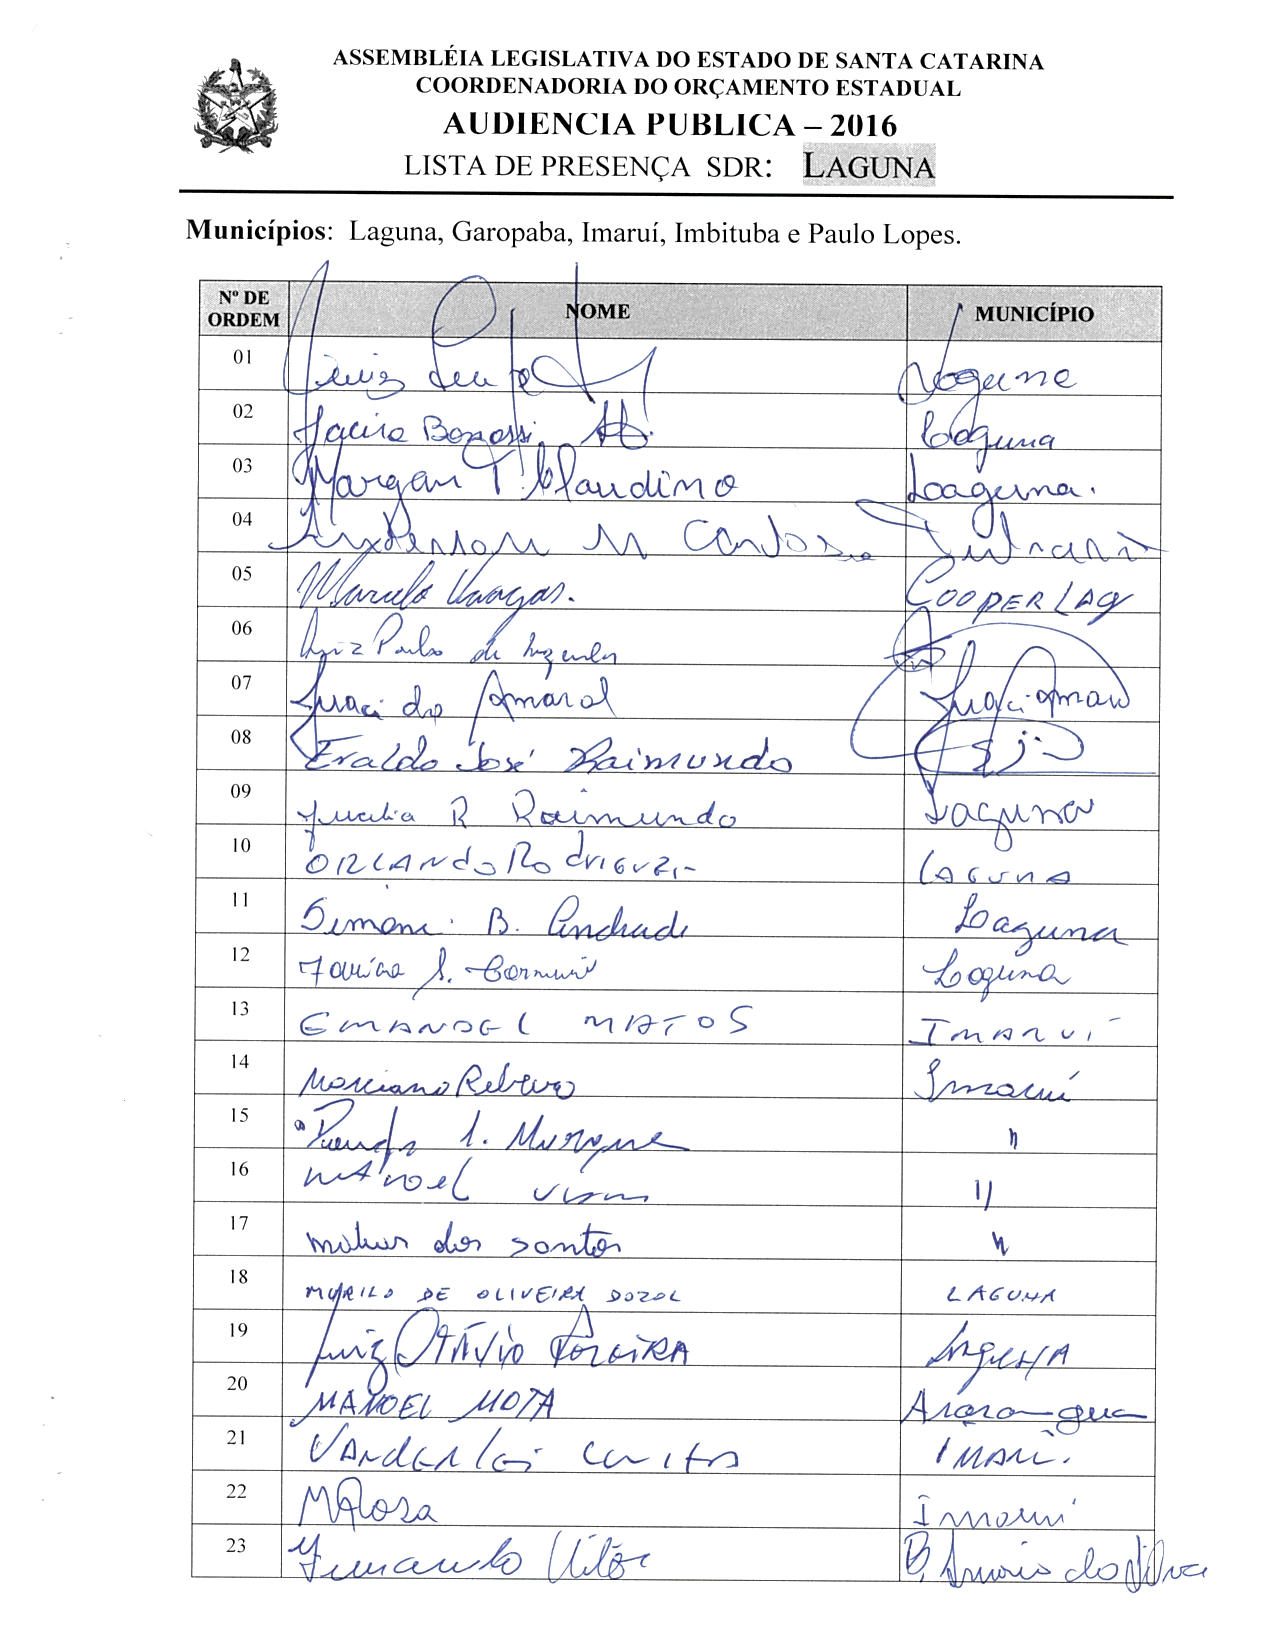 ASSEMBLÉIA LEGISLATIVA DO ESTADO DE SANTA CATARINA
COORDENADORIA DO ORÇAMENTO ESTADUAL
AUDIENCIA PUBLICA – 2016
LISTA DE PRESENÇA SDR: LAGUNA
Municípios: Laguna, Garopaba, Imaruí, Imbituba e Paulo Lopes.
Nº DE ORDEM NOME MUNICÍPIO
01 Laguna
02 Jacira Laguna
03 T. Claudino Laguna.
04 Anderson M Cardoso
05 Marcelo Vargas. COOPERLAG
06 Luiz Paulo de
07 Juraci do Amaral Juraci Amaral
08 Eraldo José Raimundo
09 R Raimundo Laguna
10 ORLANDO Rodrigues LAGUNA
11 Simone B. Andrade Laguna
12 S. Laguna
13 EMANOEL MATOS IMARUI
14 Marciano Ribeiro Imaruí
15 "
16 MANOEL "
17 dos Santos "
18 MURILO DE OLIVEIRA DOZOL LAGUNA
19 Luiz OTÁVIO PEREIRA LAGUNA
20 MANOEL MOTA Araranguá
21 VANDERLEI
22 MRosa Imaruí
23 Fernando Vitor